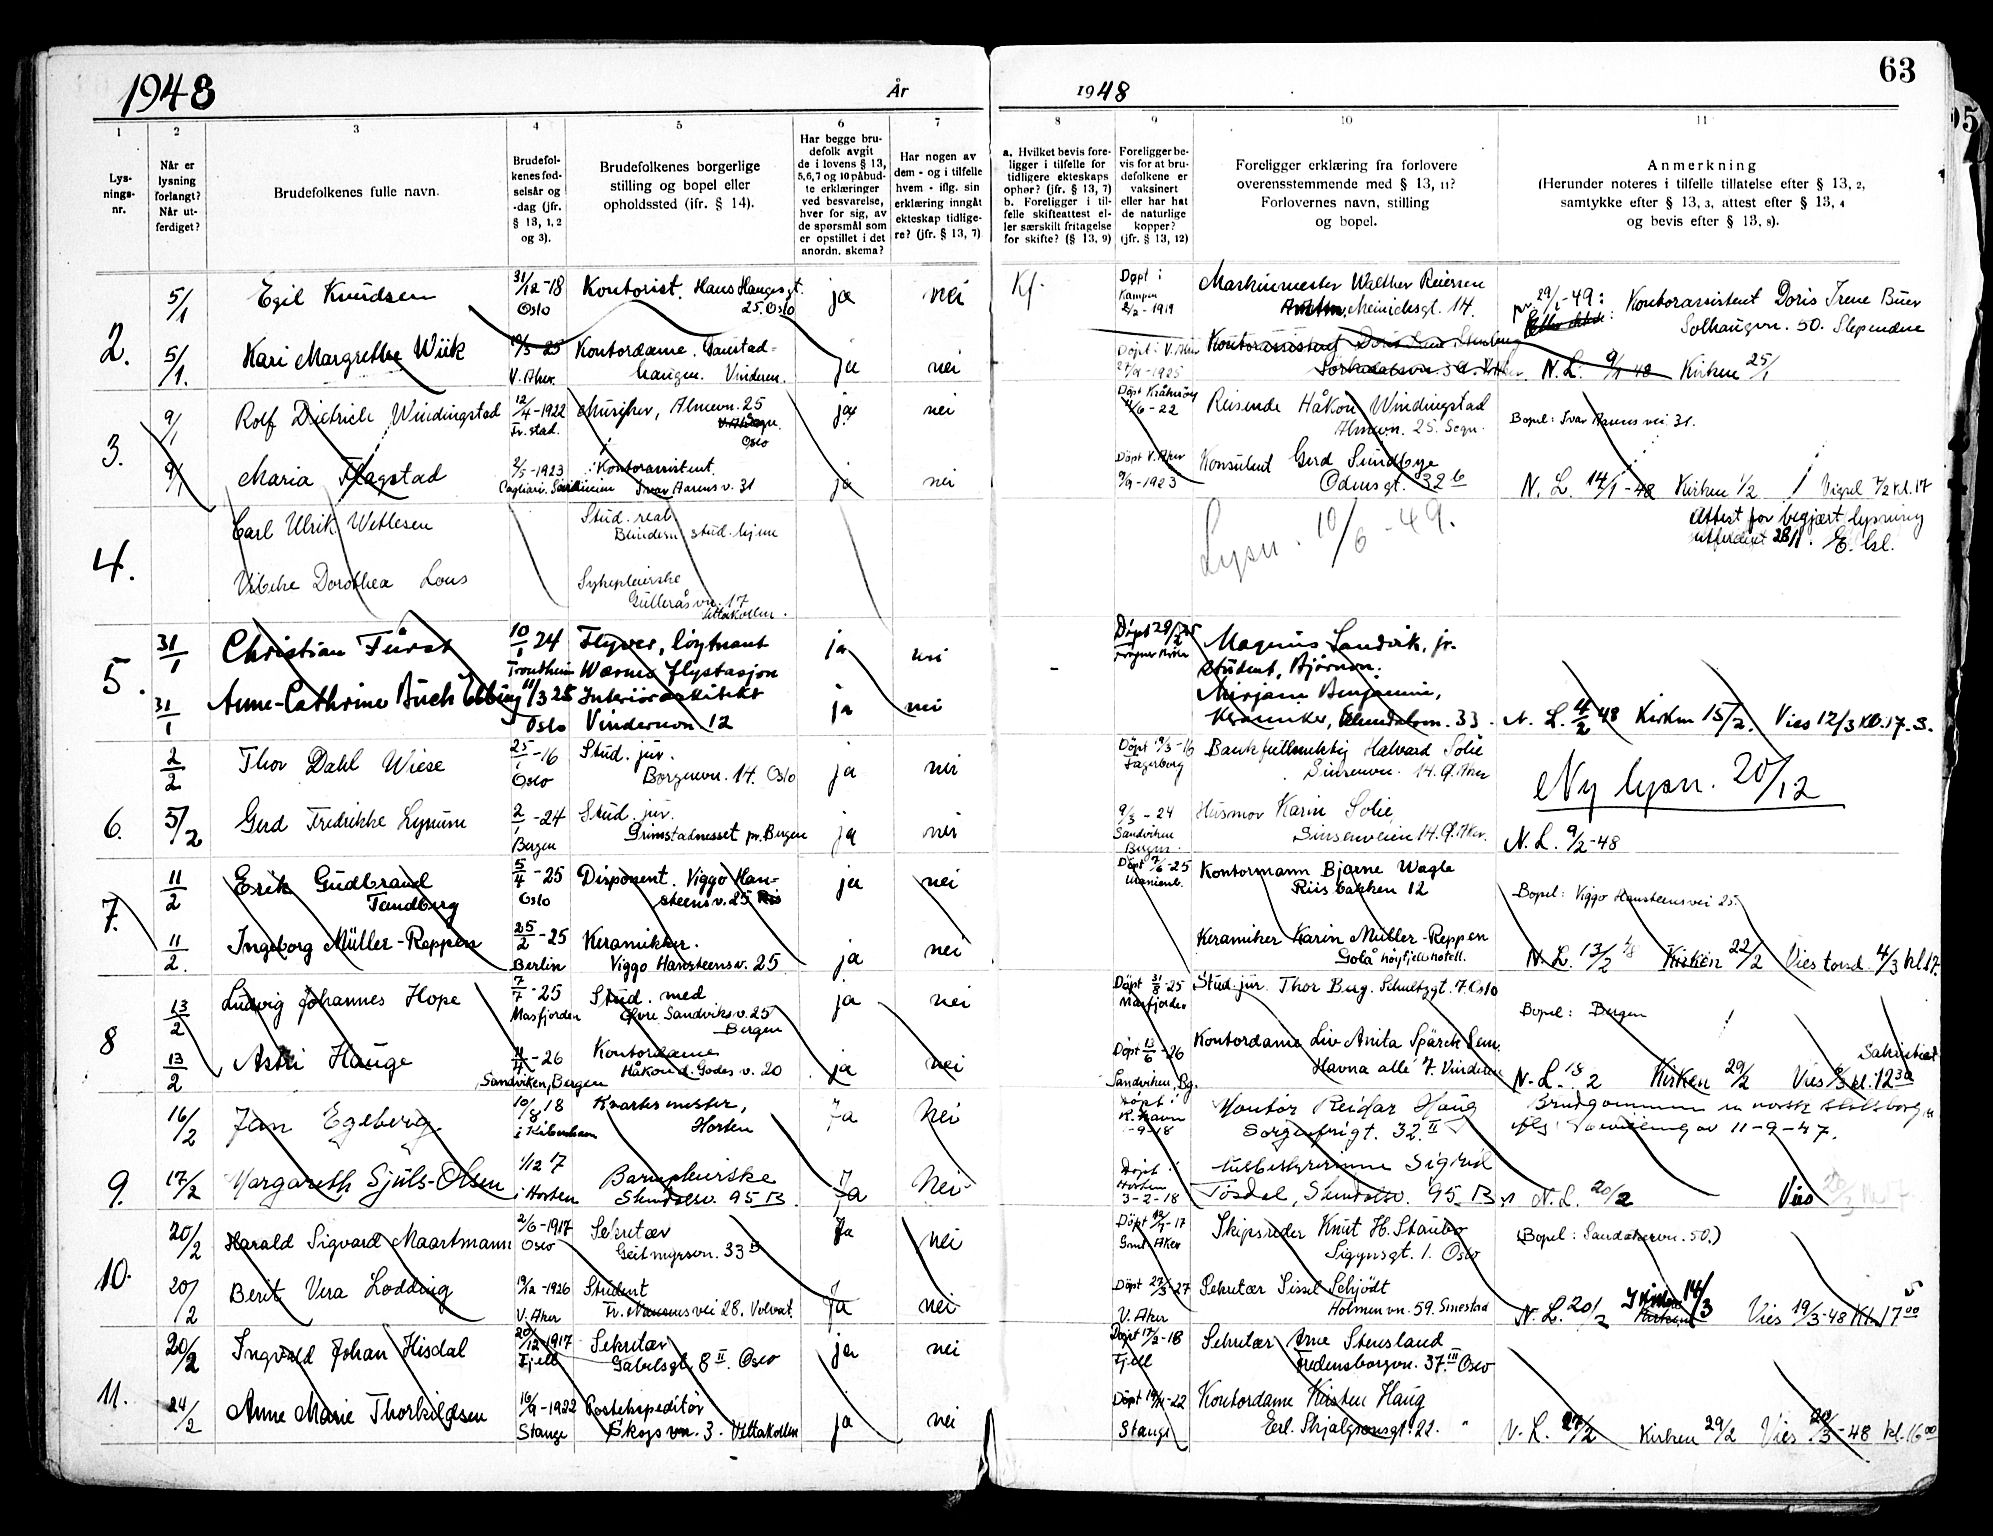 1948
År
1948
63
1
2
3
4
5
6
7
8
9
10
11
Lys-
nings-
nr.
Når er
lysning
forlangt?
Når ut-
ferdiget?
Brudefolkenes fulle navn.
Brudefol-
kenes fød-
selsår og
-dag (jfr.
§ 13, 1, 2
og 3).
Brudefolkenes borgerlige
stilling og bopel eller
opholdssted (ifr. § 14).
Har begge bru-
defolk avgit
de i lovens § 13,
5,6,7 og 10 påbud-
te erklæringer
ved besvarelse,
hver for sig, av
de spørsmål som
er opstillet i det
anordn. skema?
Har nogen av
dem - og i tilfelle
hvem - iflg. sin
erklæring inngåt
ekteskap tidlige-
re? (jfr. § 13, 7)
a. Hvilket bevis fore-
ligger i tilfelle for
tidligere ekteskaps
ophør? (jfr. § 13, 7)
b. Foreligger i til-
felle skifteattest el-
ler særskilt fritagelse
for skifte? (§ 13, 9)
Foreligger be-
vis for at bru-
defolkene er
vaksinert
eller har hat
de naturlige
kopper?
(jfr. § 13, 12)
Foreligger erklæring fra forlovere
overensstemmende med § 13, 11?
Forlovernes navn, stilling
og bopel.
Anmerkning
(Herunder noteres i tilfelle tillatelse efter § 13, 2,
samtykke efter § 13, 3, attest efter § 13, 4
og bevis efter § 13, 8).
2.
5/1
Egil Knudsen
31/12-18
Oslo
Kontorist. Hans Haugesgt.
25. Oslo
ja
nei
Kf.
Døpt i
Kampen
2/2-1919
Maskinmester Walther Reiersen
Meinichsgt. 14.
29/1-49: Kontorassistent Doris Irene Buer
Solhaugvn. 50. Slependen
5/1.
Kari Margrethe Wiik
V. Aker.
Kontordame. Gaustad-
Vinderen.
ja
nei
Døpt i V. Aker
1925
Kontorassistent
N. L. 9/1-48 Kirken 25/1
3.
9/1
Rolf Dietrich Windingstad
12/4-1922
Fr.stad.
Musiker, Almevn. 25
Oslo
ja
nei
Døpt Kråkerøy
11/6-22
Reisende Håkon Windingstad
Almevn. 25. Sogn.
Bopel: Ivar Aasens vei 31.
9/1
Maria Flagstad
2/5-1923
Cagliari. Sardinien
Kontorassistent.
Ivar Aasens v. 31
ja
nei
Døpt V. Aker
9/9-1923
Konsulent Gerd Sundbye
Odinsgt. 32 b
N. L. 14/1-48 Kirken 1/2 Vigsel 7/2 kl. 17
4.
Carl Ulrik Wetlesen
Stud. real
Blindern stud. hjem
Lysn. 10/6-49.
Attest for begjært lysning
utferdiget 28/1. E. hl.
Vibeke Dorothea Lous
Sykepleierske
Gulleråsvn. 17
Vettakollen.
5.
31/1
Christian Fürst
10/1 24
Trondheim
Flyver, løytnant
Wærnes flystasjon
ja
nei
-
Døpt 29/2 25
Magnus Landvik, jr.
student, Bjørnvn.
31/1
Anne-Cathrine Buch Ebbing
11/3 25
Oslo
Interiørarkitekt
Vindernvn 12
ja
nei
Mirjam Benjamine,
Keramiker, Slemdalsvn. 33.
N. L. 4/2 48 Kirken 15/2. Vies 12/3 Kl. 17. S.
6.
2/2
Thor Dahl Wiese
25/1-16
Oslo
Stud. jur.
Borgenvn. 14. Oslo
ja
nei
Døpt 19/3-16
Fagerborg
Bankfullmektig Halvard Solie
Sinsenvn. 14. Ø. Aker
Ny lysn. 20/12
5/2
Gerd Fredrikke Lysum
2/1-24
Bergen
Stud. jur.
Grimstadnesset pr. Bergen
ja
nei
9/3-24
Sandviken
Bergen.
Husmor Karin Solie,
Sinsenveien 14. Ø. Aker.
N. L. 9/2-48
7.
11/2
Erik Gudbrand
Tandberg
5/4-25
Oslo
Disponent. Viggo Han-
steens v. 25
ja
nei
Døpt 7/6-25
Uranienb.
Kontormann Bjarne Wagle
Riisbakken 12
Bopel: Viggo Hansteens vei 25.
11/2.
Ingeborg Müller-Reppen
25/2-25
Berlin
Keramikker.
Viggo Hansteensv. 25
ja
nei
Keramiker Karin Müller-Reppen
Golå høyfjellshotell.
N. L. 13/2 48 Kirken 22/2 Vies torsd. 4/3 kl 17.
8
13/2
Ludvig Johannes Hope
7/7-25
Masfjorden
Stud. med
Øvre Sandviksv. 25
Bergen
ja
nei
Døpt 31/8-25
Masfjorden
Stud. jur. Thor Berg. Schultzgt. 7. Oslo
Bopel: Bergen
13/2
Astri Hauge
11/4-26
Sandviken, Bergen
Kontordame
Håkon d. Godes v. 20
ja
nei
Døpt 13/6-26
Sandviken, Bg.
Kontordame Liv Anita Spärck Sem.
Havna allé 7. Vinderen
N. L. 18/2 Kirken 29/2 Vies kl. 12 30
Sakristiet
9.
16/2
Jan Egeberg
10/8 18
i København
Kvartermester,
Horten
Ja
Nei
Døpt i
K. havn
-9-18
Kontor Reidar Haug
Sorgenfrigt. 32 II
Brudgommen er norsk statsborger
iflg. bevilling av 11-9-47.
17/2
Margareth Sjuls-Olsen
1/12 17
i Horten
Barnepleierske
Slemdalsv. 95 B
Ja
Nei
Døpt i
Horten
3-2-18
Husbestyrerinne Sigrid
Tosdal, Slemdalsv. 95 B
N. L. 20/2
Vies
10.
20/2
Harald Sigvard Maartmann
2/6-1917
Oslo
Sekretær
Geitmyrsvn. 33 B
Ja
nei
Gml. Aker
Skipsreder Knut H. Staubo
Sigynsgt. 1. Oslo
(Bopel: Sandakervn. 50.)
20/2
Berit Vera Lodding
19/12-1926
V. Aker
Student
Fr. Nansens vei 28. Volvat.
Ja
nei
Døpt 27/3-27
V. Aker
Sekretær Sissel Schjødt
Holmenvn. 59. Smestad
N. L. 20/2 I kirken 14/3 Vies 19/3-48 Kl. 17 00
11.
20/2
Ingvald Johan Hisdal
20/12-1917
Fjell
Sekretær
Gabelsgt. 8 II. Oslo
ja
nei
Døpt 17/2-18
Fjell
Sekretær Arne Stensland
Fredensborgvn. 37. III Oslo
24/2
Anne Marie Thorkildsen
16/9-1922
Stange
Postekspeditør
Skogsvn. 3. Vettakollen
ja
nei
Døpt 19/11-22
Stange
Kontordame Kirsten Haug
Erl. Skjalgssonsgt. 22. "
N. L. 27/2 Kirken 29/2 Vies 20/3-48 kl. 16 00